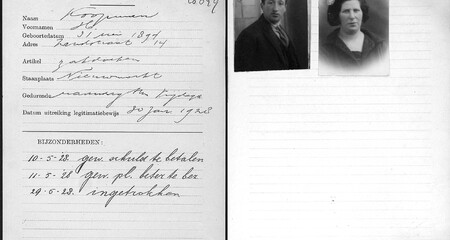 Naam Koopman
Voornamen
Geboortedatum 31 Mei 1894
Adres 14
Artikel zakdoeken
Staanplaats Nieuwmarkt
Gedurende
Datum uitreiking legitimatiebewijs 20 Jan 1928
BIJZONDERHEDEN:
10-5-28 gew. schuld te betalen
11-5-28 gew. pl. beter te bez
29-5-28 ingetrokken